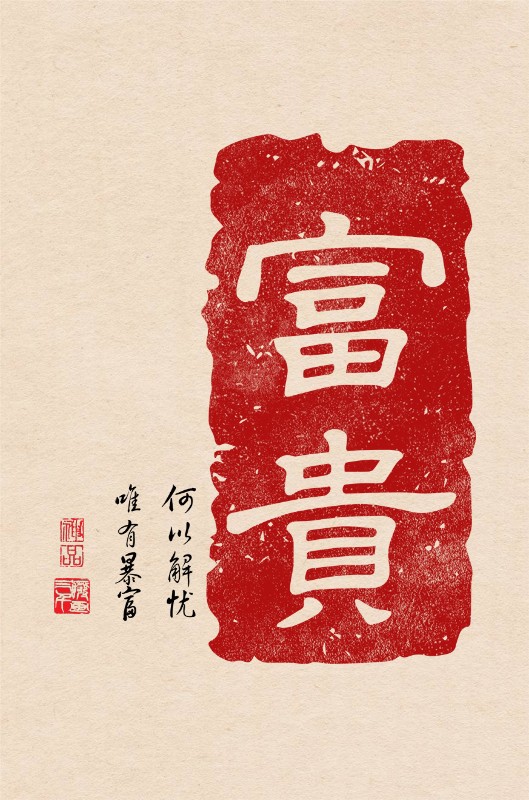 富貴
何以解忧
唯有暴富
神品